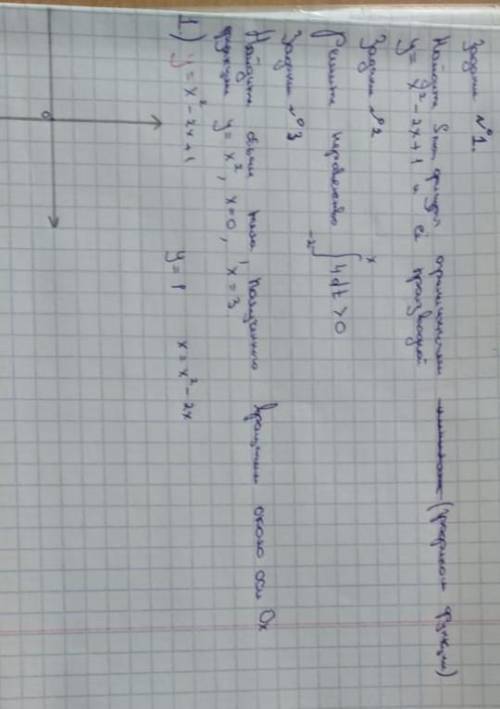 Задача №1.
Найдите Sпл. фигуры ограниченной (графиком функции)
y = x² - 2x + 1 и её производной
Задача №2
Решить неравенство ∫₋₂ˣ 4dt > 0
Задача №3
Найдите объём тела, полученного вращением около оси Ox
функции y = x², x = 0, x = 3
1) y = x² - 2x + 1 y = 1 x = x² - 2x
0